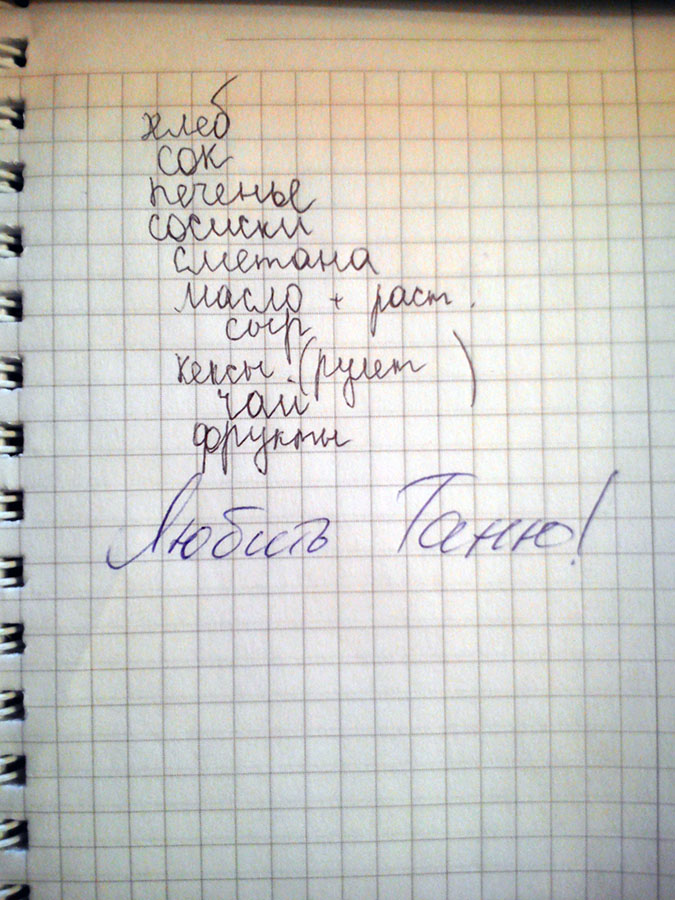 хлеб
сок
печенье
сосиски
сметана
масло + раст.
сыр
кексы (рулет)
чай
фрукты
Любить Таню!